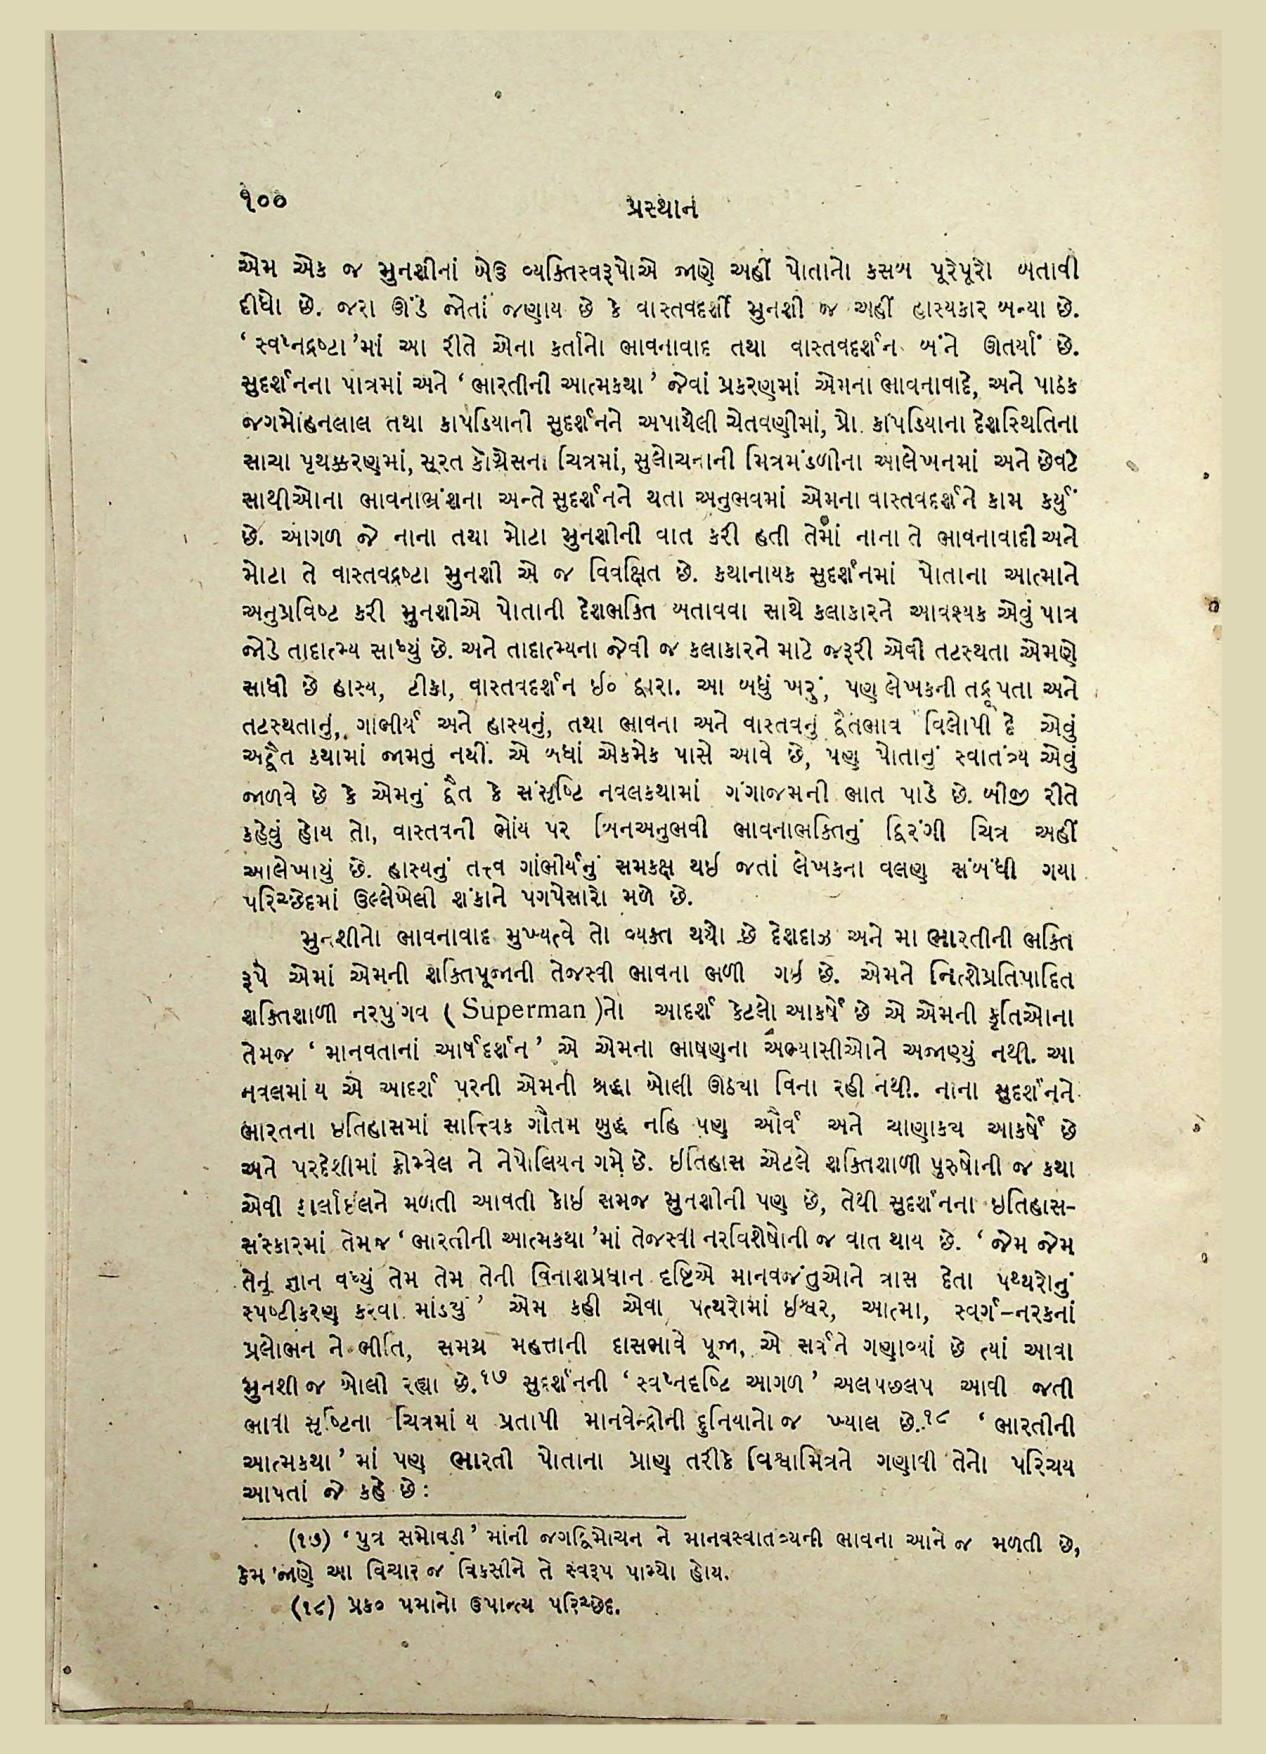 ૧૦૦
પ્રસ્થાન
એમ એક જ મુનશીનાં બેઉ વ્યક્તિસ્વરૂપોએ જાણે અહીં પોતાનો કસબ પૂરેપૂરો બતાવી
દીધો છે. જરા ઊંડે જોતાં જણાય છે કે વાસ્તવદર્શી મુનશી જ અહીં હાસ્યકાર બન્યા છે.
‘ સ્વપ્નદ્રષ્ટા ’માં આ રીતે એના કર્તાનો ભાવનાવાદ તથા વાસ્તવદર્શન બંને ઊતર્યાં છે.
સુદર્શનના પાત્રમાં અને ‘ ભારતીની આત્મકથા ’ જેવાં પ્રકરણમાં એમના ભાવનાવાદે, અને પાઠક
જગમોહનલાલ તથા કાપડિયાની સુદર્શનને અપાયેલી ચેતવણીમાં, પ્રો. કાપડિયાના દેશસ્થિતિના
સાચા પૃથક્કરણમાં, સૂરત કોંગ્રેસના ચિત્રમાં, સુલોચનાની મિત્રમંડળીના આલેખનમાં અને છેવટે
સાથીઓના ભાવનાભ્રંશના અન્તે સુદર્શનને થતા અનુભવમાં એમના વાસ્તવદર્શને કામ કર્યું
છે. આગળ જે નાના તથા મોટા મુનશીની વાત કરી હતી તેમાં નાના તે ભાવનાવાદી અને
મોટા તે વાસ્તવદ્રષ્ટા મુનશી એ જ વિવક્ષિત છે. કથાનાયક સુદર્શનમાં પોતાના આત્માને
અનુપ્રવિષ્ટ કરી મુનશીએ પોતાની દેશભક્તિ બતાવવા સાથે કલાકારને આવશ્યક એવું પાત્ર
જોડે તાદાત્મ્ય સાધ્યું છે. અને તાદાત્મ્યના જેવી જ કલાકારને માટે જરૂરી એવી તટસ્થતા એમણે
સાધી છે હાસ્ય, ટીકા, વાસ્તવદર્શન ઇ૦ દ્વારા. આ બધું ખરું, પણ લેખકની તદ્રૂપતા અને
તટસ્થતાનું, ગાંભીર્ય અને હાસ્યનું, તથા ભાવના અને વાસ્તવનું દ્વૈતભાવ વિલોપી દે એવું
અદ્વૈત કથામાં જામતું નથી. એ બધાં એકમેક પાસે આવે છે, પણ પોતાનું સ્વાતંત્ર્ય એવું
જાળવે છે કે એમનું દ્વૈત કે સંસૃષ્ટિ નવલકથામાં ગંગાજમની ભાત પાડે છે. બીજી રીતે
કહેવું હોય તો, વાસ્તવની ભોંય પર બિનઅનુભવી ભાવનાભક્તિનું દ્વિરંગી ચિત્ર અહીં
આલેખાયું છે. હાસ્યનું તત્ત્વ ગાંભીર્યનું સમકક્ષ થઈ જતાં લેખકના વલણ સંબંધી ગયા
પરિચ્છેદમાં ઉલ્લેખેલી શંકાને પગપેસારો મળે છે.
મુનશીનો ભાવનાવાદ મુખ્યત્વે તો વ્યક્ત થયો છે દેશદાઝ અને મા ભારતીની ભક્તિ
રૂપે એમાં એમની શક્તિપૂજાની તેજસ્વી ભાવના ભળી ગઈ છે. એમને નિત્શેપ્રતિપાદિત
શક્તિશાળી નરપુંગવ ( Superman )નો આદર્શ કેટલો આકર્ષે છે એ એમની કૃતિઓના
તેમજ ‘ માનવતાનાં આર્ષદર્શન ’ એ એમના ભાષણના અભ્યાસીઓને અજાણ્યું નથી. આ
નવલમાં ય એ આદર્શ પરની એમની શ્રદ્ધા બોલી ઊઠ્યા વિના રહી નથી. નાના સુદર્શનને
ભારતના ઇતિહાસમાં સાત્ત્વિક ગૌતમ બુદ્ધ નહિ પણ ઔર્વ અને ચાણાક્ય આકર્ષે છે
અને પરદેશીમાં ક્રોમ્વેલ ને નેપોલિયન ગમે છે. ઇતિહાસ એટલે શક્તિશાળી પુરુષોની જ કથા
એવી કાર્લાઈલને મળતી આવતી કોઈ સમજ મુનશીની પણ છે, તેથી સુદર્શનના ઇતિહાસ-
સંસ્કારમાં તેમજ ‘ ભારતીની આત્મકથા ’માં તેજસ્વી નરવિશેષોની જ વાત થાય છે. ‘ જેમ જેમ
તેનું જ્ઞાન વધ્યું તેમ તેમ તેની વિનાશપ્રધાન દૃષ્ટિએ માનવજંતુઓને ત્રાસ દેતા પથ્થરોનું
સ્પષ્ટીકરણ કરવા માંડ્યું ’ એમ કહી એવા પત્થરોમાં ઈશ્વર, આત્મા, સ્વર્ગ–નરકનાં
પ્રલોભન ને ભીતિ, સમગ્ર મહત્તાની દાસભાવે પૂજા, એ સર્વને ગણાવ્યાં છે ત્યાં આવા
મુનશી જ બોલી રહ્યા છે.૧૭ સુદર્શનની ‘ સ્વપ્નદૃષ્ટિ આગળ ’ અલપછલપ આવી જતી
ભાવી સૃષ્ટિના ચિત્રમાં ય પ્રતાપી માનવેન્દ્રોની દુનિયાનો જ ખ્યાલ છે.૧૮ ‘ ભારતીની
આત્મકથા ’ માં પણ ભારતી પોતાના પ્રાણ તરીકે વિશ્વામિત્રને ગણાવી તેનો પરિચય
આપતાં જે કહે છે :
(૧૭) ‘ પુત્ર સમોવડી ’ માંની જગદ્વિમોચન ને માનવસ્વાતંત્ર્યની ભાવના આને જ મળતી છે,
કેમ જાણે આ વિચાર જ વિકસીને તે સ્વરૂપ પામ્યો હોય.
(૧૮) પ્રક૦ ૫માનો ઉપાન્ત્ય પરિચ્છેદ.